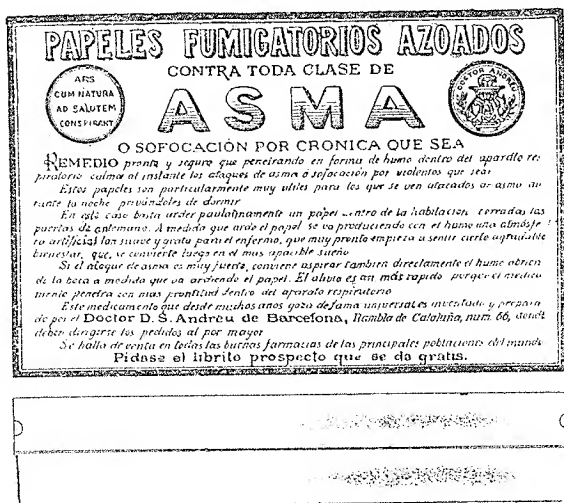 PAPELES FUMIGATORIOS AZOADOS
CONTRA TODA CLASE DE
ARS
CUM NATURA
AD SALUTEM
CONSPIRANT
ASMA
DOCTOR ANDREU
O SOFOCACIÓN POR CRONICA QUE SEA
REMEDIO pronto y seguro que penetrando en forma de humo dentro del aparato res
piratorio calma al instante los ataques de asma ó sofocación por violentos que sean
Estos papeles son particularmente muy utiles para los que se ven atacados de asma du
rante la noche privándoles de dormir
En este caso basta arder paulatinamente un papel dentro de la habitación cerradas las
puertas de antemano. A medida que arde el papel se va produciendo con el humo una atmósfe
ra artificial tan suave y grata para el enfermo, que muy pronto empieza a sentir cierto agradable
bienestar, que se convierte luego en el mas apacible sueño
Si el ataque de asma es muy fuerte, conviene aspirar tambien directamente el humo abrien
do la boca a medida que va ardiendo el papel. El alivio es an más rapido porque el medica
mento penetra con mas prontitud dentro del aparato respiratorio
Este medicamento que desde muchos años goza de fama universal es inventado y prepara
do por el Doctor D. S. Andreu de Barcelona, Rambla de Cataluña, num. 66, donde
deben dirigirse los pedidos al por mayor
Se halla de venta en todas las buenas farmacias de las principales poblaciones del mundo
Pidase el librito prospecto que se da gratis.